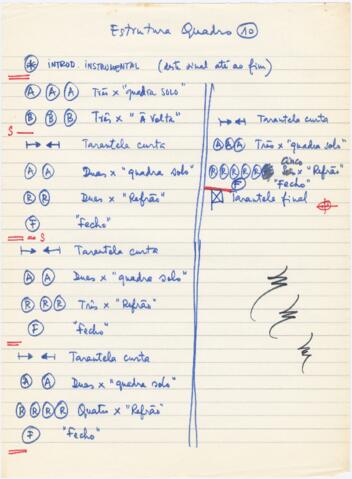 Estrutura Quadro 10
* INTROD. INSTRUMENTAL (deste sinal até ao fim)
A A A Três x "quadra solo"
B B B Três x "À Volta"
S
Tarantela curta
A A Duas x "quadra solo"
R R Duas x "Refrão"
F "Fecho"
ao S
Tarantela curta
A A Duas x "quadra solo"
R R R Três x "Refrão"
F "Fecho"
Tarantela curta
A A Duas x "quadra solo"
R R R R Quatro x "Refrão"
F "Fecho"
Tarantela curta
A A A Três x "quadra solo"
R R R R R Cinco x "Refrão"
F "Fecho"
Tarantela final